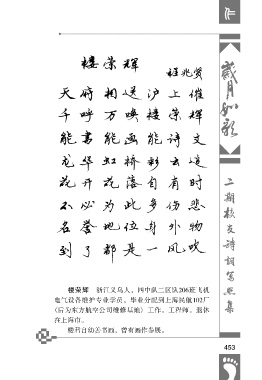 作
岁月如歌
楼荣辉
程兆贤
天府相送沪上催
千呼万唤楼荣辉
能书能画能诗文
龙华虹桥彩云追
花开花落自有时
不必为此多伤悲
名誉地位身外物
到了都是一风吹
楼荣辉 浙江义乌人，四中队二区队206班飞机
电气设备维护专业学员。毕业分配到上海民航102厂
(后为东方航空公司维修基地）工作。工程师。退休
在上海市。
楼君自幼善书画，曾有画作参展。
二期校友诗词写照集
453